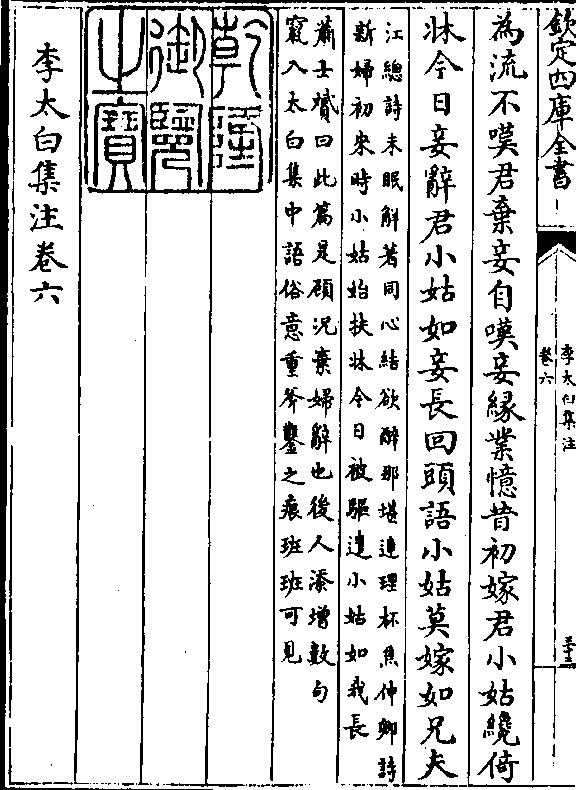 欽定四庫全書
李太白集注
卷六
三十三
為流不嘆君棄妾自嘆妾緣業憶昔初嫁君小姑纔倚
牀今日妾辭君小姑如妾長回頭語小姑莫嫁如兄夫
江總詩未眠解著同心結欲醉那堪連理杯焦仲卿詩
新婦初來時小姑始扶牀今日被驅遣小姑如我長
蕭士贇曰此篇是顧況棄婦辭也後人添增數句
竄入太白集中語俗意重斧鑿之痕班班可見
乾隆
御覽
之寶
李太白集注卷六